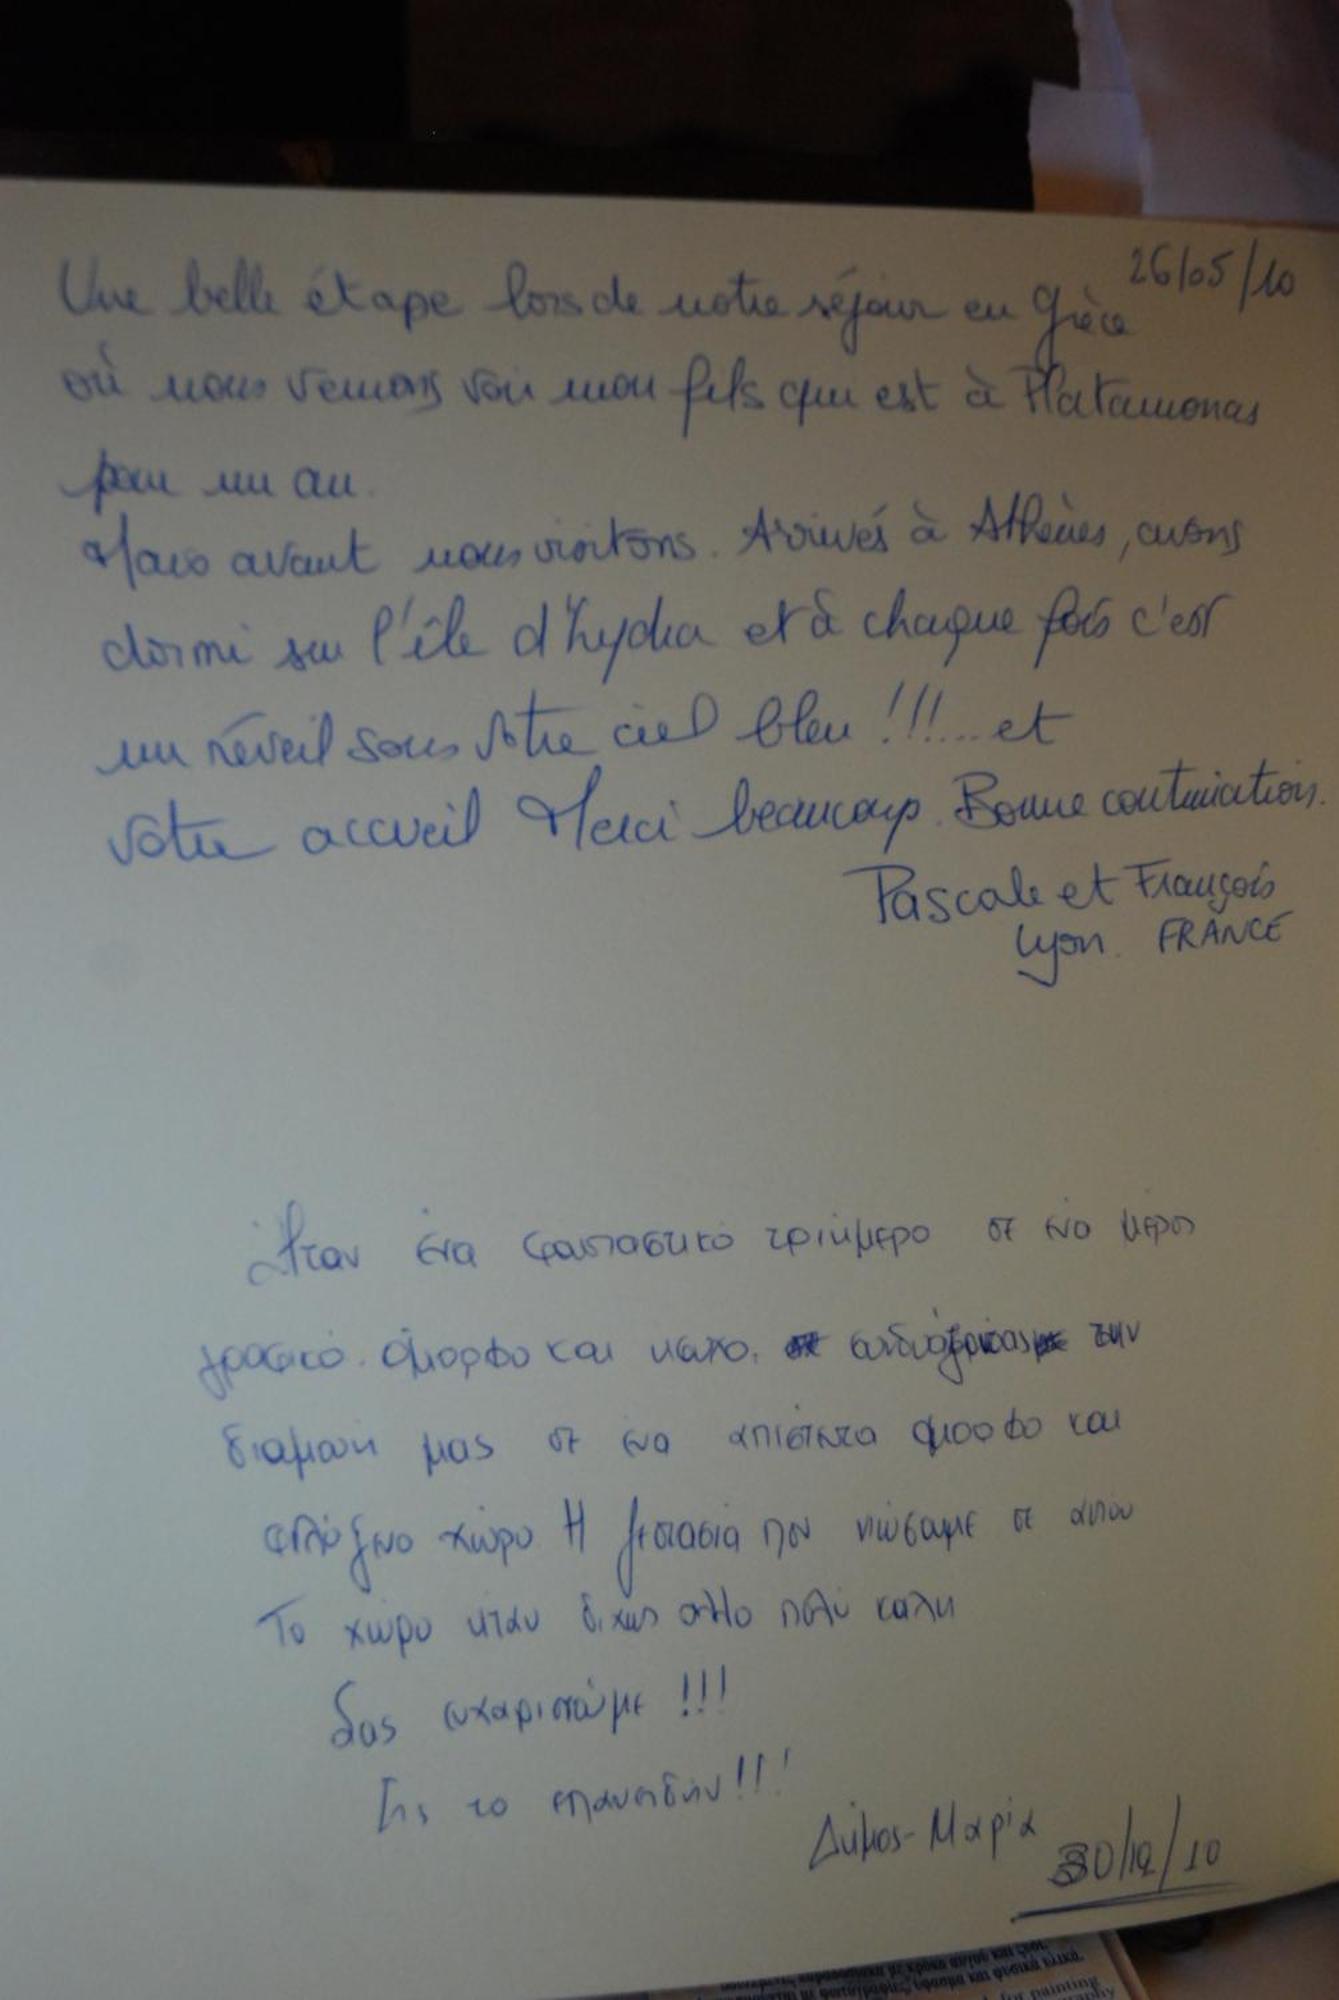 26/05/10
Une belle étape lors de notre séjour en Grèce
où nous venons voir mon fils qui est à Platamonas
pour un an.
Mais avant nous visitons. Arrivés à Athènes, avons
dormi sur l'île d'hydra et à chaque fois c'est
un réveil sous votre ciel bleu !!!... et
votre accueil Merci beaucoup. Bonne continuation.
Pascale et François
Lyon. FRANCE
Ήταν ένα φανταστικό τριήμερο σε ένα μέρος
γραφικό. όμορφο και την
διαμονή μας σε ένα απίστευτα όμορφο και
φιλόξενο χώρο Η ζεστασιά που νιώσαμε σε αυτον
Το χώρο ήταν δίχως άλλο πολύ καλη
Σας ευχαριστούμε !!!
Εις το επανιδήν!!!
Δήμος-Μαρία
30/12/10
for painting